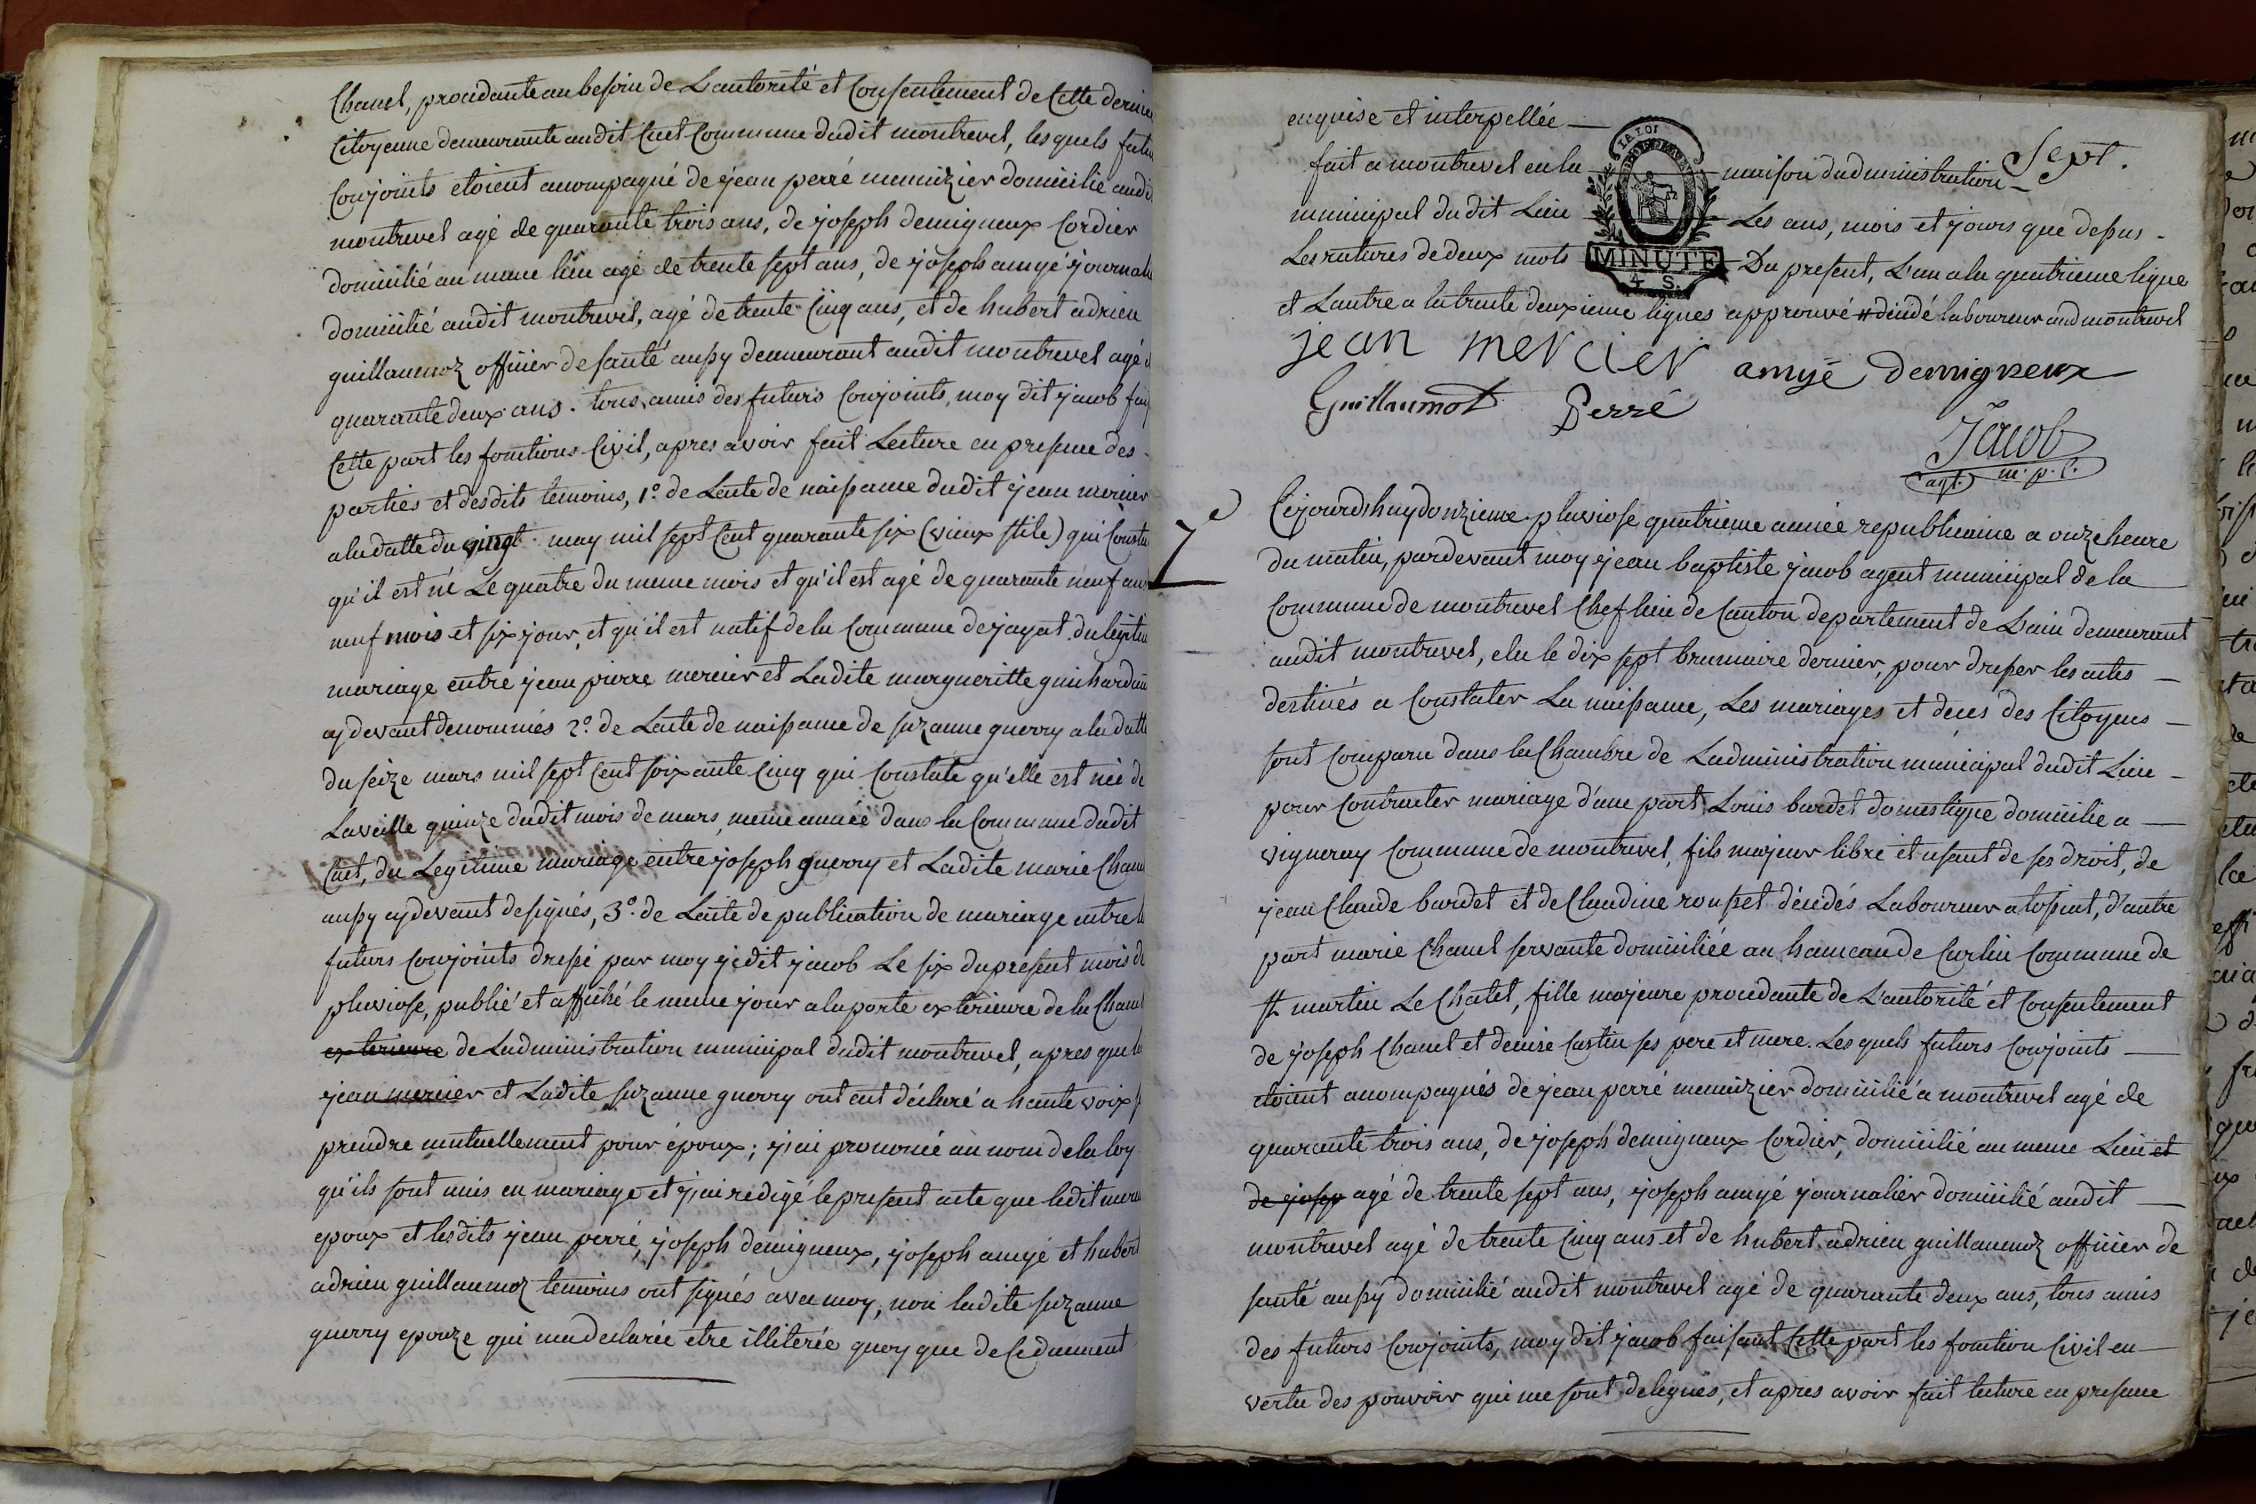 Chanel, procedante au besoin de L'autorité et Consentement de Cette derniere
Citoyenne demeurante audit Cuet Commune dudit montrevel, lesquels futurs
Conjoints etoient acompagné de jean perré menuizier domicilié audit
montrevel agé de quarante trois ans, de joseph demigneux Cordier
domicilié au meme lieu agé de trente sept ans, de joseph amyé journalier
domicilié audit montrevel, agé de trente Cinq ans, et de hubert adrien
guillaumoz officier de santé aussy demeurant audit montrevel agé de
quarante deux ans. tous amis des futurs Conjoints, moy dit jacob fais
Cette part les fonctions Civil, apres avoir fait Lecture en presence des -
parties et desdits temoins, 1°. de Lacte de naissance dudit jean mercier
a la datte du vingt may mil sept Cent quarante six (vieux stile) qui Consta
qu'il est né Le quatre du meme mois et qu'il est agé de quarante neuf ans
neuf mois et six jour, et qu'il est natif de la Commune de jayat du legitim
mariage entre jean pierre mercier et Ladite margueritte guichardan
cy devant denommés 2°. de Lacte de naissance de suzanne guerry a la datte
du seize mars mil sept Cent soixante Cinq qui Constate qu'elle est née de
La veille quinze dudit mois de mars, meme année dans la Commune dudit
Cuet, du Legitime mariage entre joseph guerry et Ladite marie Chanel
aussy cy devant designés, 3°. de Lacte de publication de mariage entre le
futurs Conjoints dressé par moy jedit jacob Le six du present mois de
pluviose, publié et affiché le meme jour a la porte exterieure de la Cham
exterieure de Ladministration municipal dudit montrevel, apres que le
jean mercier et Ladite suzanne guerry ont eut déclaré a haute voix s
prendre mutuellement pour époux; j'ai prononcé au nom de la loy
qu'ils sont unis en mariage et j'ai redigé le present acte que ledit merci
epoux et lesdits jean perré, joseph demigneux, joseph amyé et hubert
adrien guillaumoz temoins ont signés avec moy, non ladite suzanne
guerry epouze qui ma declarée etre illiterée quoy que de Ce duement
enquise et interpellée
Sept.
LA LOI
fait a montrevel en la maison dadministration
municipal dudit Lieu Les ans, mois et jours que dessus -
Les ratures de deux mots Du present, L'un a la quatrieme ligne
MINUTE
4 S.
et Lautre a la trente deuxieme lignes approuvé # décédé laboureur aud montrevel
jean mercier amyé demigneux
Guillaumot Perré
Jacob
agt. m. p. l.
7e
Cejourdhuy donzieme pluviose quatrieme année republicaine a onze heure
du matin, pardevant moy jean baptiste jacob agent municipal de la
Commune de montrevel Chef lieu de Canton departement de Lain demeurant
audit montrevel, elu le dix sept brumaire dernier, pour dresser les actes
destinés a Constater La naissance, Les mariages et deces des Citoyens
sont Comparu dans la Chambre de Ladministration municipal dudit Lieu
pour Contracter mariage d'une part Louis bardet domestique domicilie a
vigneray Commune de montrevel, fils majeur libre et usant de ses droit, de
jean Claude bardet et de Claudine rousset décédés Laboureur a tossiat, d'autre
part marie Chanel servante domiciliée au hameau de Curlin Commune de
st. martin Le Chatel, fille majeure procedante de L'autorité et Consentement
de joseph Chanel et denise Castin ses pere et mere. Les quels futurs Conjoints
etoient acompagnés de jean perré menuizier domicilié a montrevel agé de
quarante trois ans, de joseph demigneux Cordier, domicilié au meme Lieu et
de josep agé de trente sept ans, joseph amyé journalier domicilié audit
montrevel agé de trente Cinq ans et de hubert adrien guillaumoz officier de
santé aussy domicilié audit montrevel agé de quarante deux ans, tous amis
des futurs Conjoints, moy dit jacob faisant Cette part les fonction Civil en
vertu des pouvoir qui me sont delegués, et apres avoir fait lecture en presence